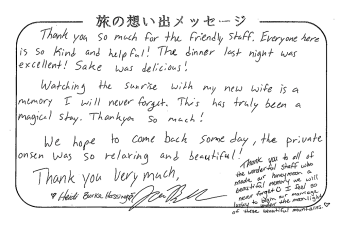 旅の想い出メッセージ
Thank you so much for the friendly staff. Everyone here
is so kind and helpful! The dinner last night was
excellent! Sake was delicious!
Watching the sunrise with my new wife is a
memory I will never forget. This has truly been a
magical stay. Thankyou so much!
We hope to come back some day, the private
onsen was so relaxing and beautiful!
Thank you very much,
Heidi
Thank you to all of
the wonderful staff who
made our honeymoon a
beautiful memory we will
never forget I feel so
lucky to begin our marriage
under the moonlight
of these beautiful mountains